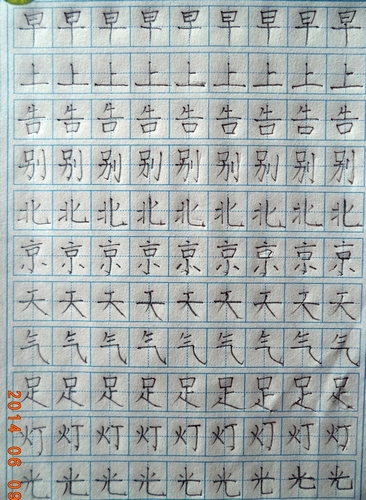 早早早早早早早早早
上上上上上上上上上
告告告告告告告告告
别别别别别别别别别
北北北北北北北北北
京京京京京京京京京
天天天天天天天天天
气气气气气气气气气
足足足足足足足足足
灯灯灯灯灯灯灯灯灯
光光光光光光光光光
2014 06 09